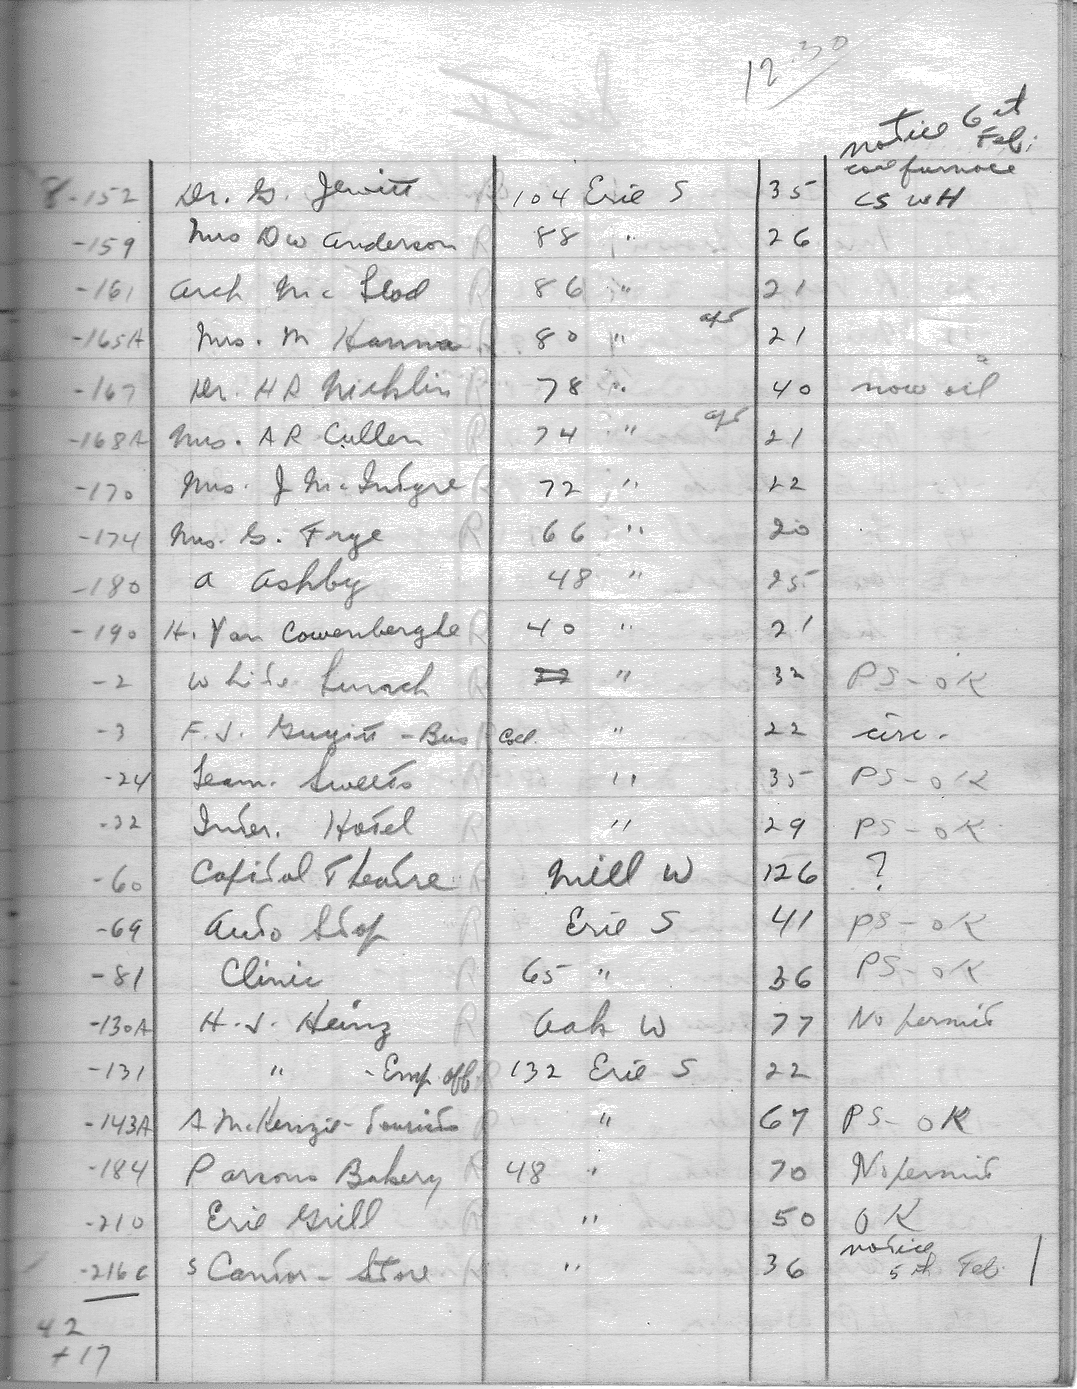 12.30
notice 6 at Feb.
coal furnace
8-152 Dr. G. Jewitt R 104 Erie S 35 CS WH
-159 Mrs D W Anderson R 88 " 26
-161 Arch McLeod R 86 " 21
-165A Mrs. M Hanna R 80 " apt 21
-167 Dr. H R Nicklin R 78 " 40 now oil
-168A Mrs. A R Cullen R 74 " apt 21
-170 Mrs. J McIntyre R 72 " 22
-174 Mrs. G. Frye R 66 " 20
-180 A Ashby 48 " 25
-190 H. Van Cowenberghe R 40 " 21
-2 White Lunch R " 32 PS-OK
-3 F.J. Guyitt - Bus Col. " 22 circ.
-24 Leam. Sweets " 35 PS-OK
-32 Inter. Hotel R " 29 PS-OK
-60 Capitol Theatre R Mill W 126 ?
-69 Auto Stop R Erie S 41 PS-OK
-81 Clinic R 65 " 36 PS-OK
-130A H.J. Heinz R Oak W 77 No permit
-131 " - Emp off R 132 Erie S 22
-143A A McKenzie - Tourists " 67 PS-OK
-184 Parsons Bakery R 48 " 70 No permit
-210 Erie Grill R " 50 OK
notice
-216C S Cantor - Store " 36 5th Feb.
42
+17